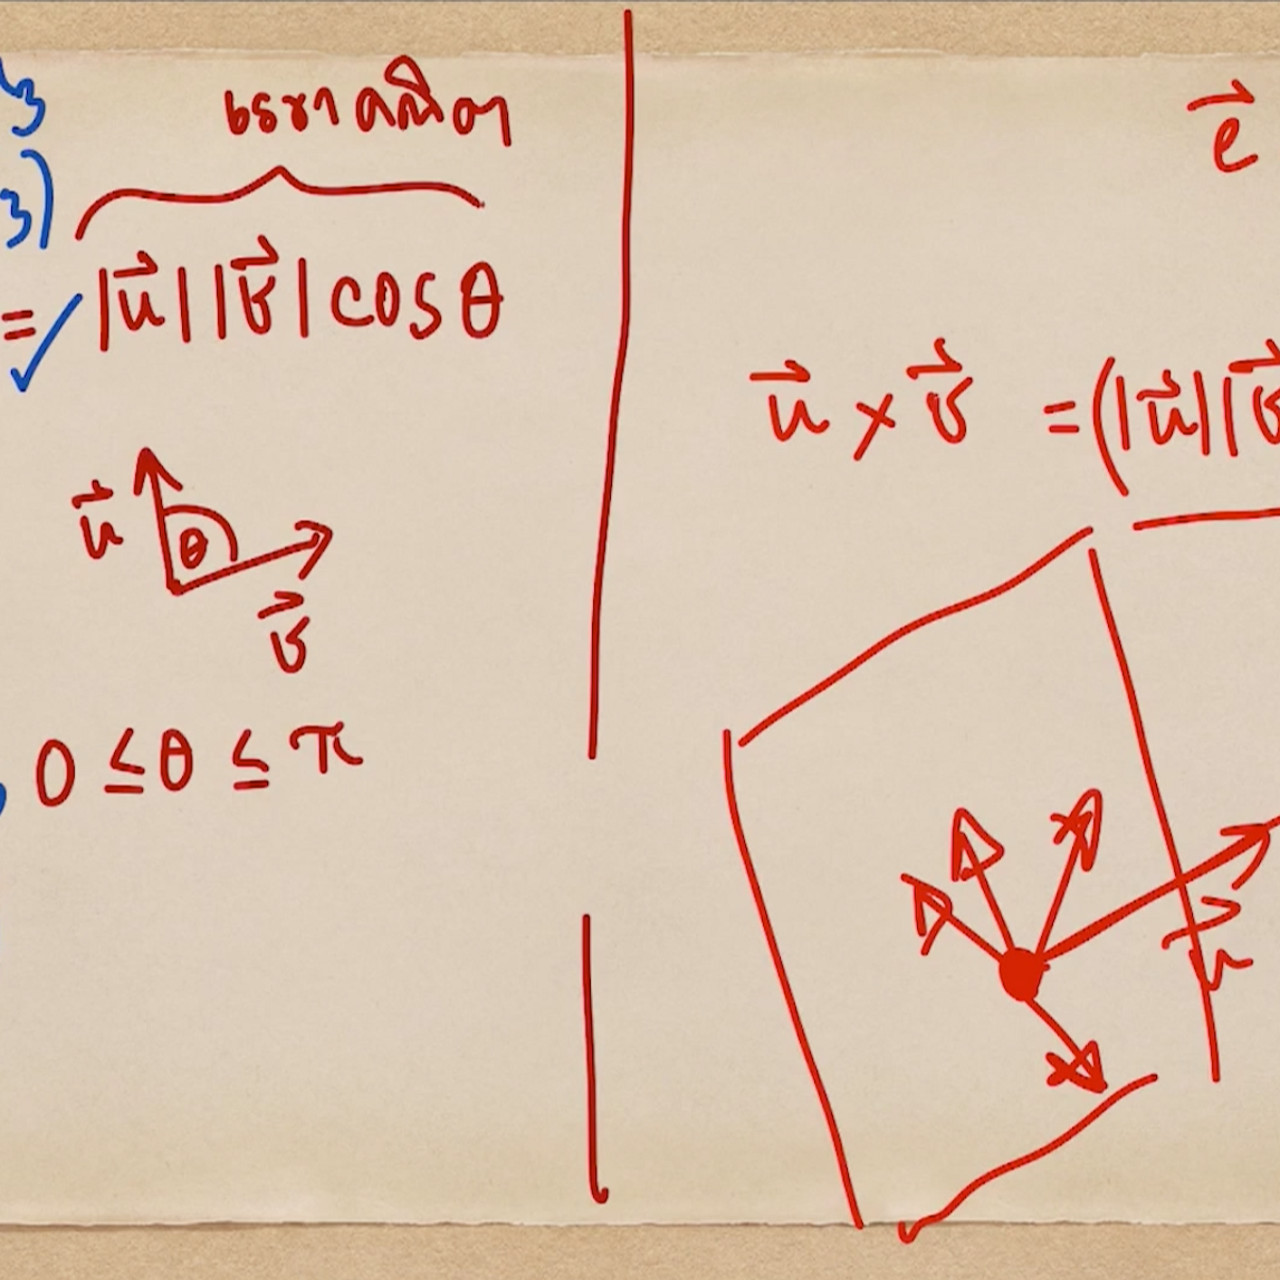 เรขาคณิต
3)
= |u⃗||v⃗| cos θ
u⃗
θ
v⃗
0 ≤ θ ≤ π
e⃗
u⃗ × v⃗ = (|u⃗||v⃗
u⃗